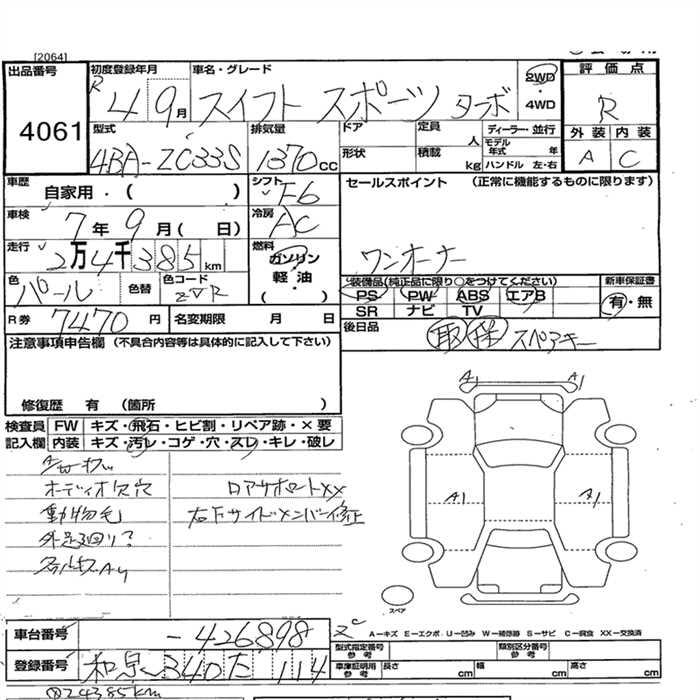 [2064]
出品番号
4061
初度登録年月
R4 9月
車名・グレード
スイフト スポーツ ターボ
2WD
4WD
評価点
R
外装 内装
A C
型式
4BA-ZC33S
排気量
1370cc
ドア
形状
定員 人
積載 kg
ディーラー・並行
モデル年式 年
ハンドル 左・右
車歴
自家用・( )
シフト
F6
セールスポイント (正常に機能するものに限ります)
ワンオーナー
車検
7年9月( 日)
冷房
AC
走行
2万4千385km
燃料
ガソリン
軽・油
( )
色
パール
色替
色コード
ZVR
装備品(純正品に限り○をつけてください)
PS PW ABS エアB
SR ナビ TV
新車保証書
有・無
R券
7470円
名変期限 月 日
後日品
取 保 スペアキー
注意事項申告欄 (不具合内容等は具体的に記入して下さい)
修復歴 有 (箇所 )
検査員記入欄
FW キズ・飛石・ヒビ割・リペア跡・×要
内装 キズ・汚レ・コゲ・穴・スレ・キレ・破レ
オーディオ欠穴
動物毛
外足廻り?
ロアサポートXX
右下サイドメンバー修正
A1 A1
A1 A1
スペア
A−キズ E−エクボ U−凹み W−補修跡 S−サビ C−腐食 XX−交換済
車台番号
-426898
登録番号
和泉 340 た 114
型式指定番号 参考
類別区分番号 参考
車庫証明用 参考
長さ cm
幅 cm
高さ cm
24385km